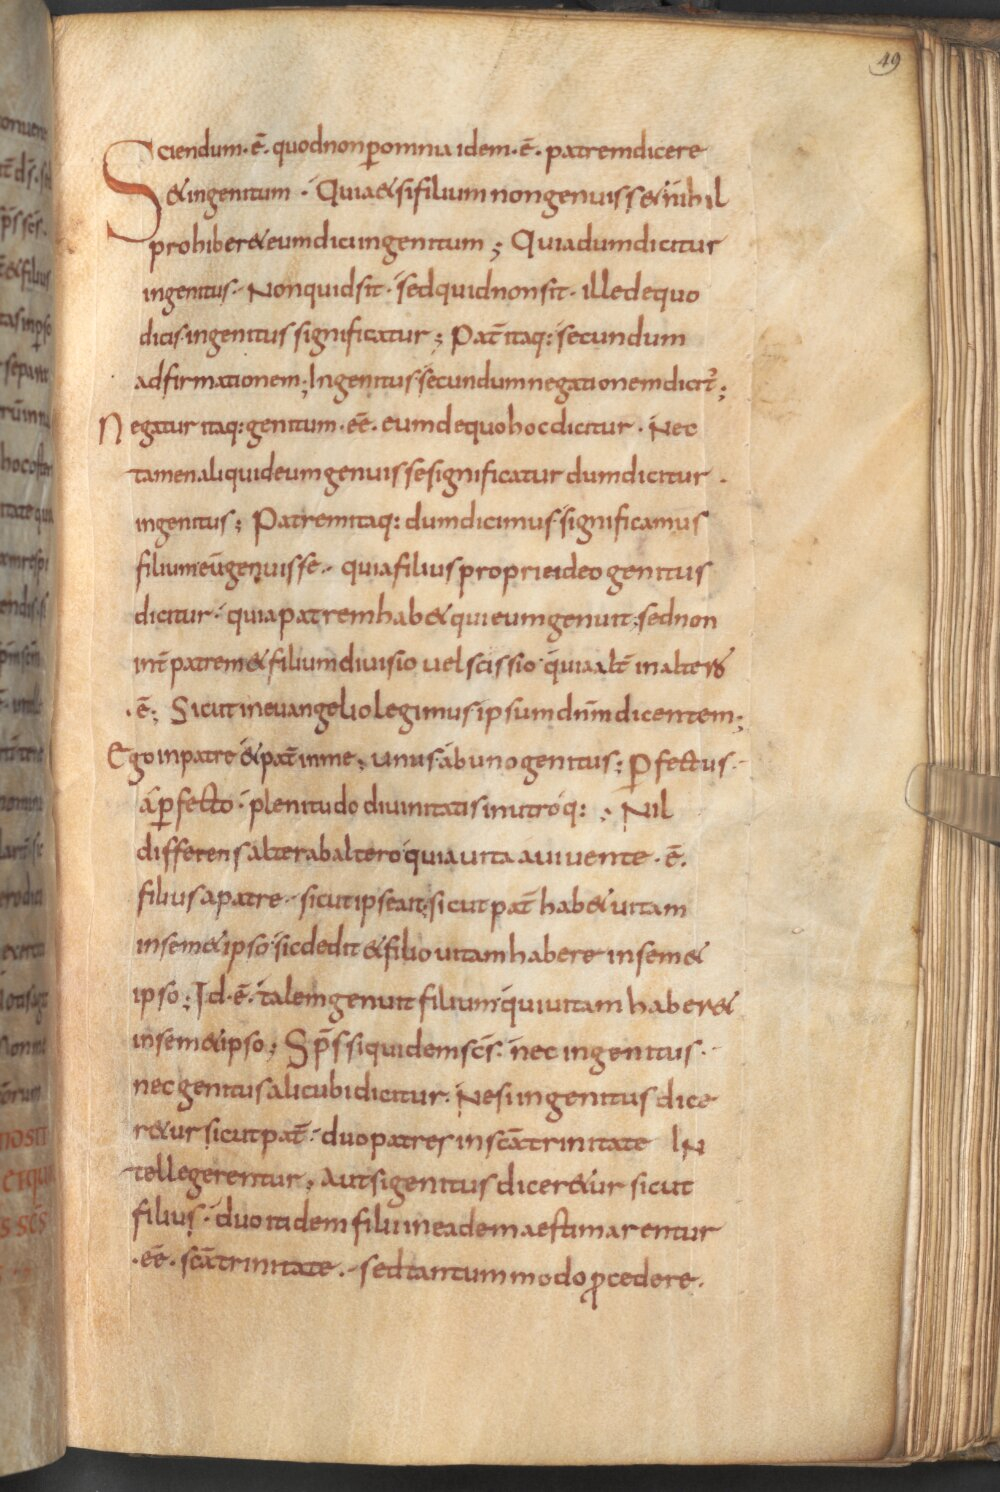 49
Sciendum · ē · quod non p̄ omnia idem · ē · patrem dicere
& ingenitum · Quia & si filium non genuiss& nihil
prohiber& eum dici ingenitum ; Quia dum dicitur
ingenitus · Non quid sit · sed quid non sit · ille de quo
dicis · ingenitus significatur ; Pat̄ itaq: secundum
adfirmationem ; Ingenitus secundum negationem dicit᷒ ;
Negatur itaq: genitum · eē · eum de quo hoc dicitur · Nec
tamen aliquid eum genuisse significatur dum dicitur ·
ingenitus ; Patrem itaq: dum dicimus · significamus
filium eū genuisse · quia filius proprie ideo genitus
dicitur · quia patrem hab& qui eum genuit ; sed non
int̄ patrem & filium divisio vel scissio · quia alt̄ in altero
· ē ; Sicut in evangelio legimus ipsum dn̄m dicentem ;
Ego in patre & pat̄ in me ; unus ab uno genitus ; P̄fectus ·
a p̄fecto · plenitudo divinitatis in utroq: ; Nil
differens alter ab altero quia vita a vivente · ē ·
filius a patre · sicut ipse ait ; sicut pat̄ hab& vitam
in sem&ipso · sic dedit & filio vitam habere in sem&
ipso ; Id · ē · talem genuit filium · qui vitam haber&
in sem&ipso ; Sp̄s siquidem sc̄s · nec ingenitus ·
nec genitus alicubi dicitur · Ne si ingenitus dice
r&ur sicut pat̄ · duo patres in sc̄a trinitate IN
tellegerentur ; Aut si genitus dicer&ur sicut
filius · duo itidem filii in eadem aestimarentur
· eē · sc̄a trinitate · sed tantummodo ꝓcedere ·